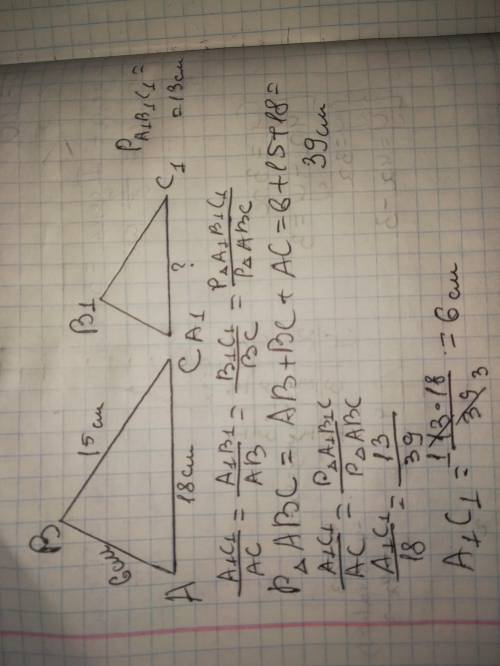 B
B1
15 см
6 см
A
18 см
C
A1
?
C1
P A1B1C1 =
= 13 см
A1C1/AC = A1B1/AB = B1C1/BC = P△A1B1C1/P△ABC
P△ABC = AB + BC + AC = 6 + 15 + 18 =
39 см
A1C1/AC = P△A1B1C/P△ABC
A1C1/18 = 13/39
A1C1 = 1 13 · 18/39 3 = 6 см